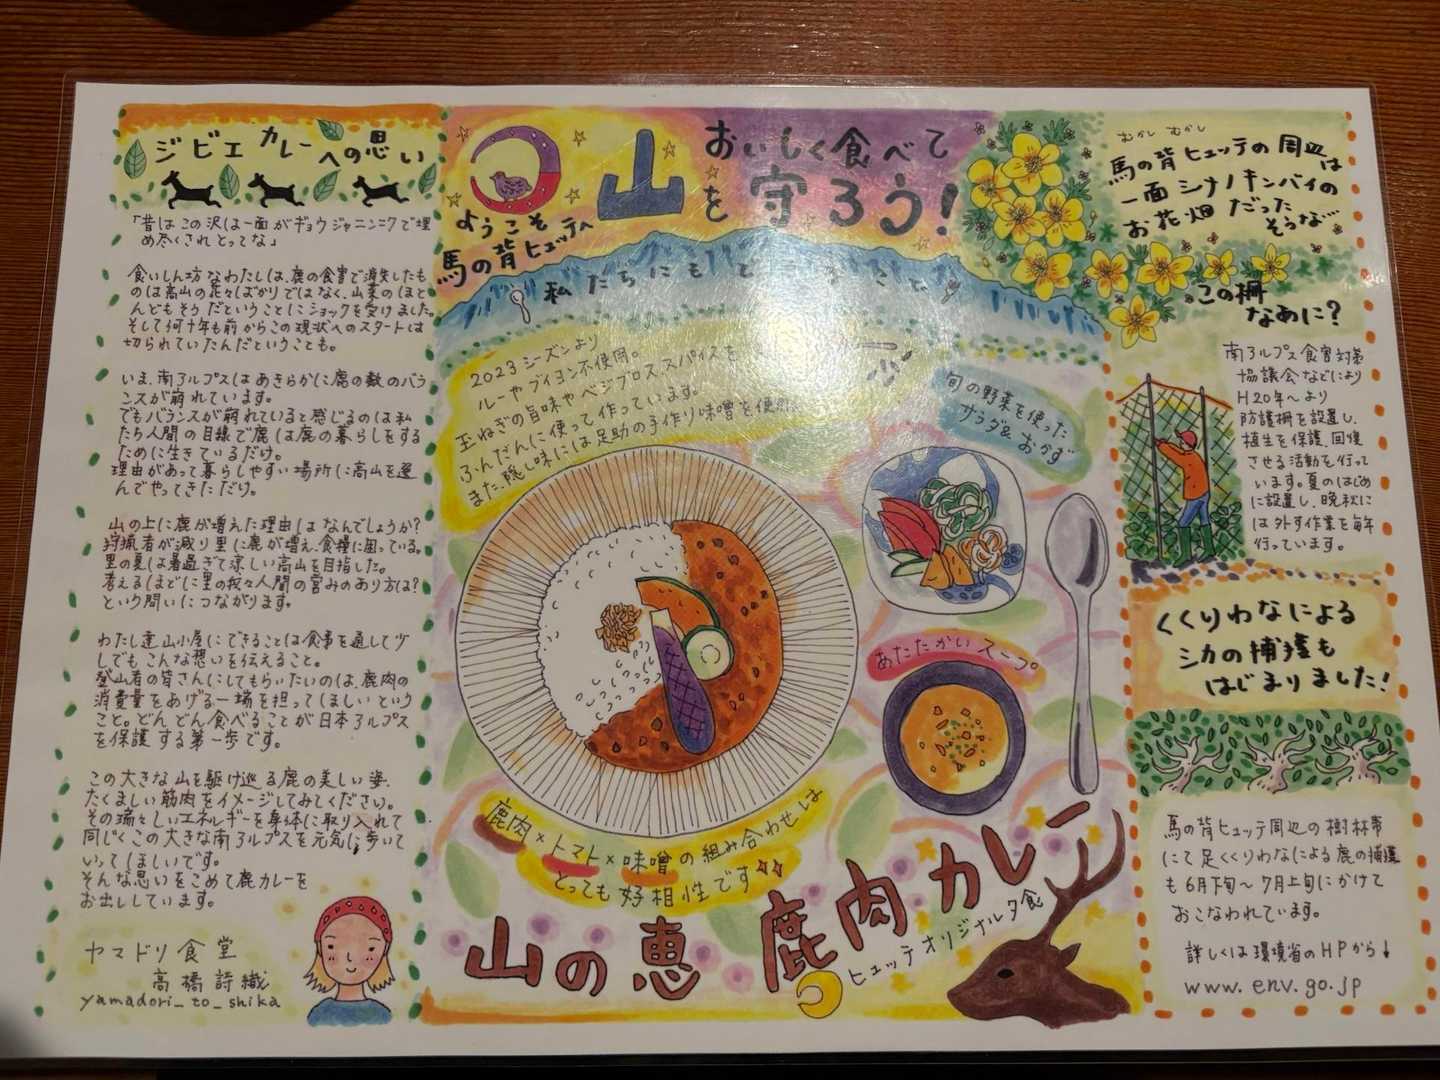 ジビエカレーへの思い
「昔はこの沢は一面がギョウジャニンニクで埋
め尽くされとってな」
食いしん坊なわたしは、鹿の食害で消失したも
のは高山の花々ばかりではなく、山菜のほと
んどもそうだということにショックを受けました。
そして何十年も前からこの現状へのスタートは
切られていたんだということも。
いま、南アルプスはあきらかに鹿の数のバラ
ンスが崩れています。
でもバランスが崩れていると感じるのは私
たち人間の目線で鹿は鹿の暮らしをする
ために生きているだけ。
理由があって暮らしやすい場所に高山を選
んでやってきただけ。
山の上に鹿が増えた理由はなんでしょうか?
狩猟者が減り里に鹿が増え、食糧に困っている。
里の夏は暑過ぎて涼しい高山を目指した。
考えるほどに里の我々人間の営みのあり方は?
という問いにつながります。
わたし達山小屋にできることは食事を通して少
しでもこんな想いを伝えること。
登山者の皆さんにしてもらいたいのは、鹿肉の
消費量をあげる一端を担ってほしいという
こと。どんどん食べることが日本アルプス
を保護する第一歩です。
この大きな山を駆け巡る鹿の美しい姿、
たくましい筋肉をイメージしてみてください。
その瑞々しいエネルギーを身体に取り入れて
同じくこの大きな南アルプスを元気に歩いて
いってほしいです。
そんな思いをこめて鹿カレーを
お出ししています。
ヤマドリ食堂
高橋詩織
yamadori_to_shika
ようこそ
馬の背ヒュッテへ
おいしく食べて
山を守ろう!
私たちにもできること
2023シーズンより
ルーやブイヨン不使用。
玉ねぎの旨味やベジブロス、スパイスを
ふんだんに使って作っています。
また、隠し味には足助の手作り味噌を使用。
旬の野菜を使った
サラダ&おかず
あたたかいスープ
鹿肉×トマト×味噌の組み合わせは
とっても好相性です
山の恵 鹿肉カレー
ヒュッテオリジナル夕食
むかし むかし
馬の背ヒュッテの周辺は
一面シナノキンバイの
お花畑だった
そうな…
この柵
なあに?
南アルプス食害対策
協議会などにより
H20年〜より
防護柵を設置し、
植生を保護、回復
させる活動を行って
います。夏のはじめ
に設置し、晩秋に
は外す作業を毎年
行っています。
くくりわなによる
シカの捕獲も
はじまりました!
馬の背ヒュッテ周辺の樹林帯
にて足くくりわなによる鹿の捕獲
も6月下旬〜7月上旬にかけて
おこなわれています。
詳しくは環境省のHPから↓
www.env.go.jp